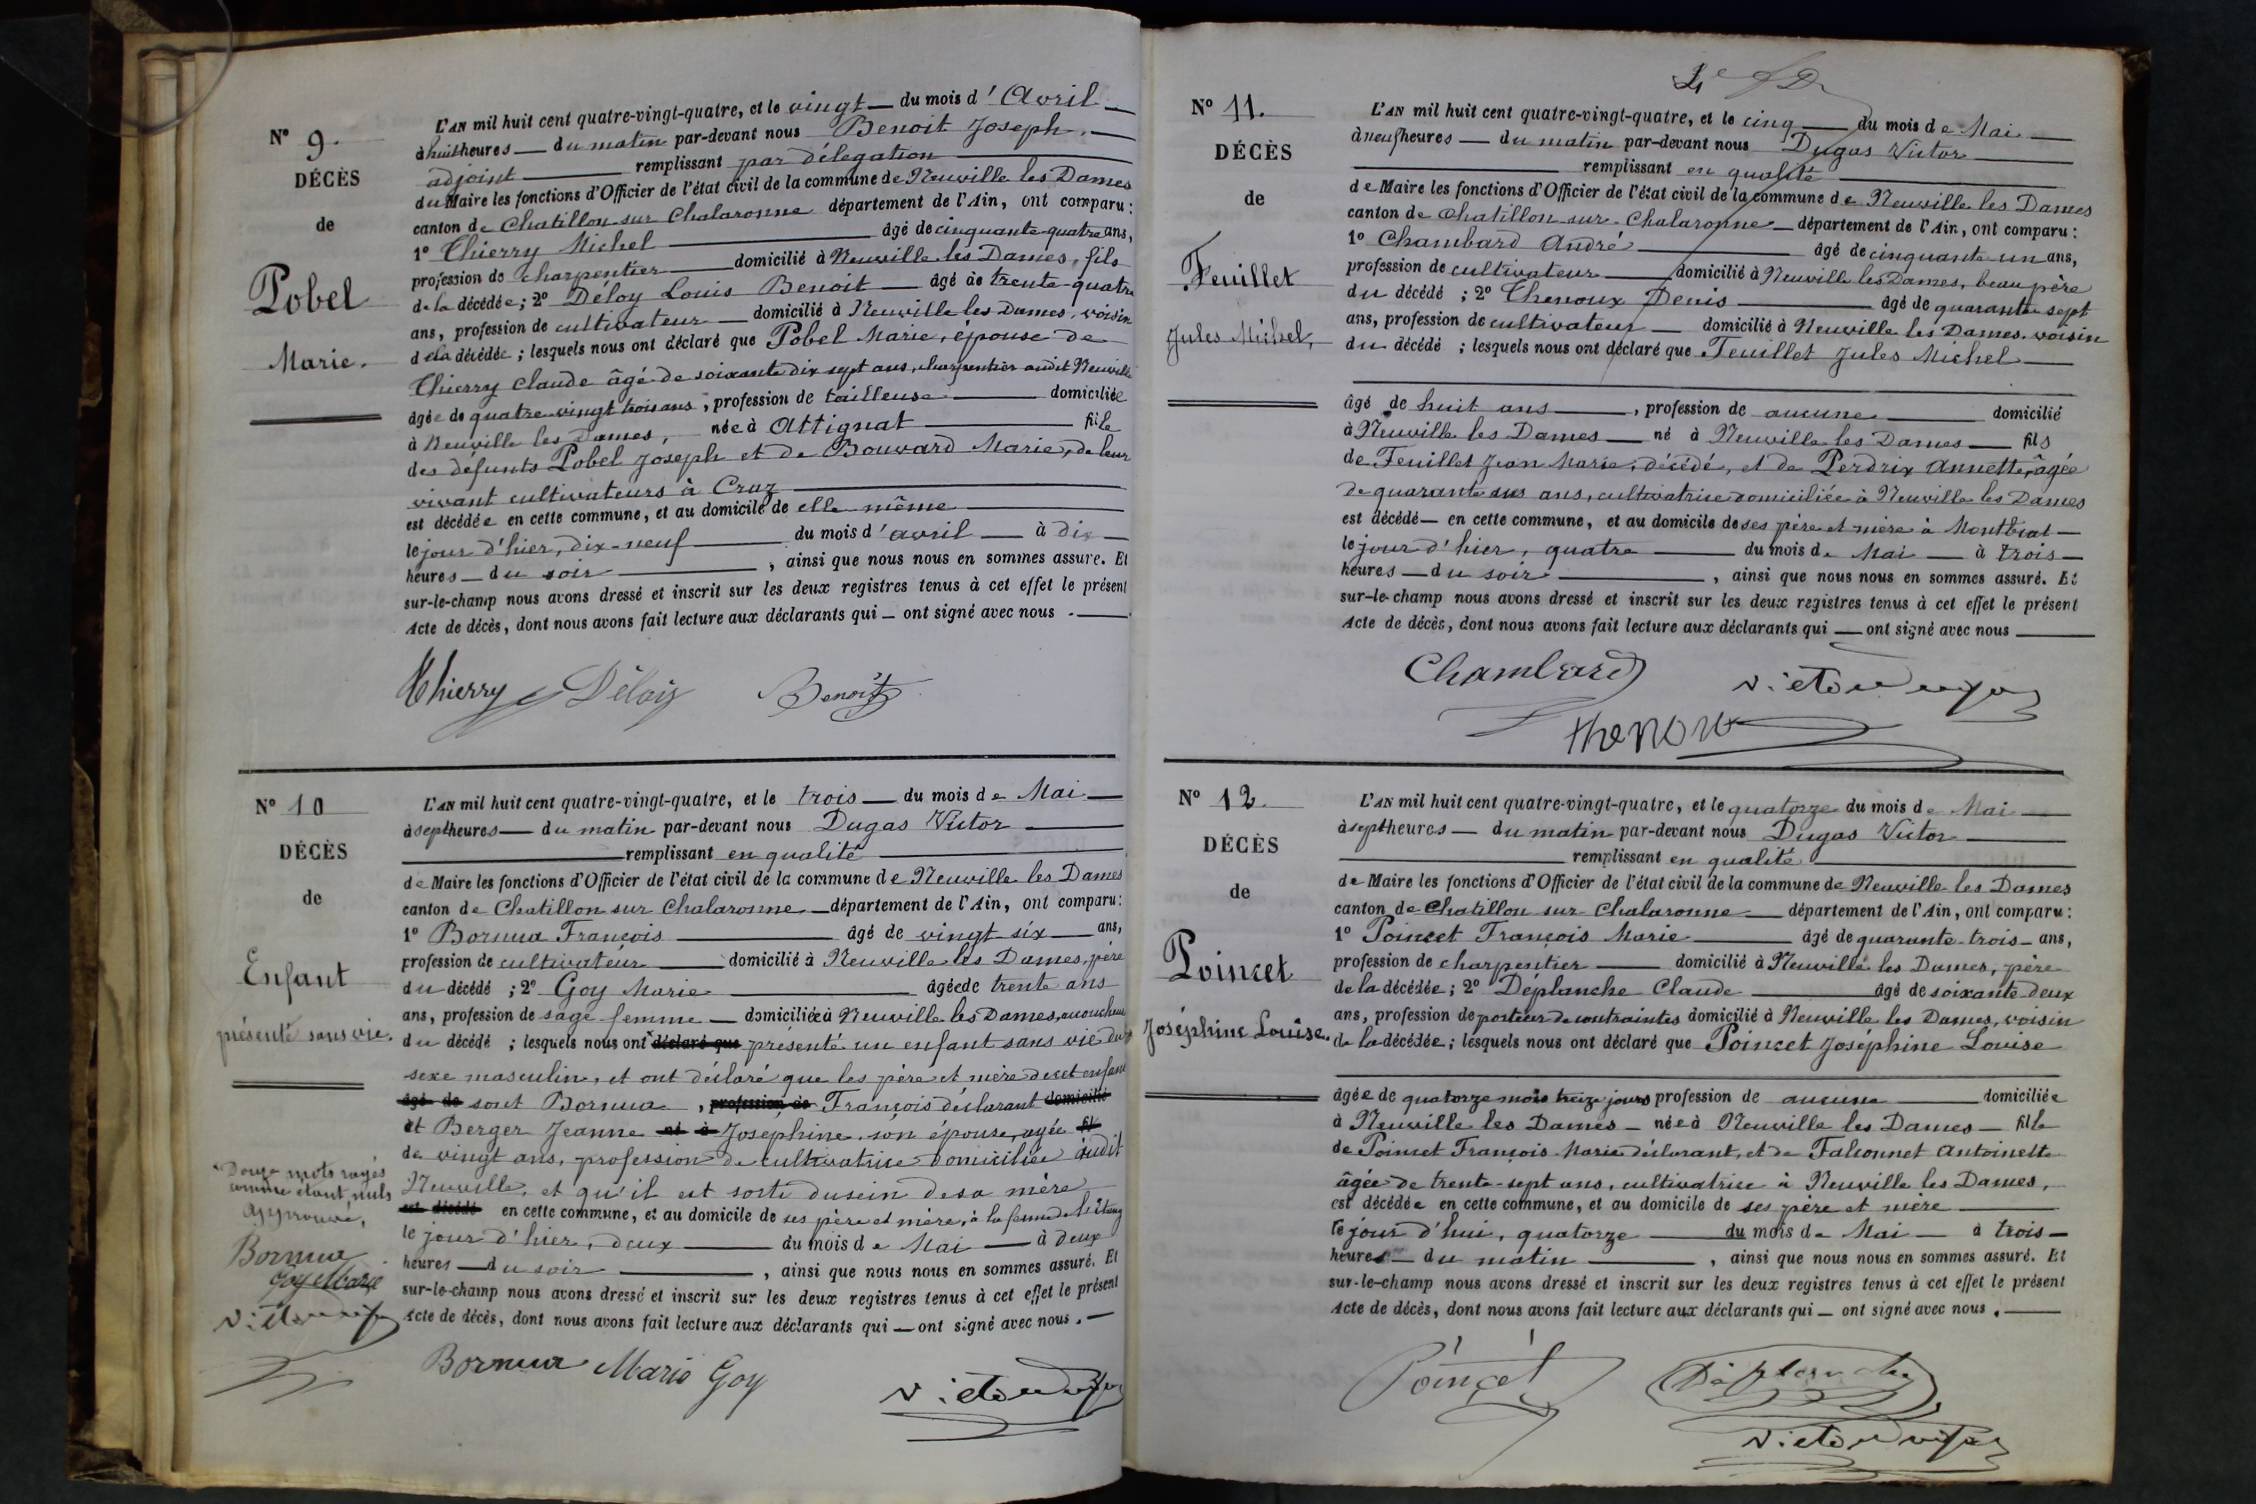 N° 9.
DÉCÈS
de
Pobel
Marie.
L'AN mil huit cent quatre-vingt-quatre, et le vingt du mois d'Avril
à huit heures du matin par-devant nous Benoit Joseph,
adjoint remplissant par délégation
du Maire les fonctions d'Officier de l'état civil de la commune de Neuville les Dames
canton de Chatillon-sur-Chalaronne département de l'Ain, ont comparu :
1° Thierry Michel âgé de cinquante-quatre ans,
profession de charpentier domicilié à Neuville les Dames, fils
de la décédée ; 2° Déloy Louis Benoit âgé de trente-quatre
ans, profession de cultivateur domicilié à Neuville les Dames, voisin
de la décédée ; lesquels nous ont déclaré que Pobel Marie, épouse de
Thierry Claude âgé de soixante dix sept ans, charpentier audit Neuville
âgée de quatre vingt trois ans, profession de tailleuse domiciliée
à Neuville les Dames, née à Attignat fille
des défunts Pobel Joseph et de Bouvard Marie, de leur
vivant cultivateurs à Craz
est décédée en cette commune, et au domicile de elle même
le jour d'hier, dix-neuf du mois d'avril à dix
heures du soir, ainsi que nous nous en sommes assuré. Et
sur-le-champ nous avons dressé et inscrit sur les deux registres tenus à cet effet le présent
Acte de décès, dont nous avons fait lecture aux déclarants qui ont signé avec nous.
Thierry Déloiy Benoit
N° 10
DÉCÈS
de
Enfant
présenté sans vie.
L'AN mil huit cent quatre-vingt-quatre, et le trois du mois de Mai
à sept heures du matin par-devant nous Dugas Victor
remplissant en qualité
de Maire les fonctions d'Officier de l'état civil de la commune de Neuville les Dames
canton de Chatillon sur Chalaronne département de l'Ain, ont comparu :
1° Bornua François âgé de vingt six ans,
profession de cultivateur domicilié à Neuville les Dames, père
du décédé ; 2° Goy Marie âgée de trente ans
ans, profession de sage femme domiciliée à Neuville les Dames, accoucheuse
du décédé ; lesquels nous ont déclaré que présenté un enfant sans vie du
sexe masculin, et ont déclaré que les père et mère de cet enfant
âgé de sont Bornua, profession de François déclarant domicilié
et Berger Jeanne né à Joséphine son épouse, agée fil
de vingt ans, profession de cultivatrice domiciliée audit
Neuville, et qu'il est sorti du sein de sa mère
est décédé en cette commune, et au domicile de ses père et mère, à la ferme de l'étang
le jour d'hier, deux du mois de Mai à deux
heures du soir, ainsi que nous nous en sommes assuré. Et
sur-le-champ nous avons dressé et inscrit sur les deux registres tenus à cet effet le présent
Acte de décès, dont nous avons fait lecture aux déclarants qui ont signé avec nous.
Douze mots rayés
comme étant nuls
Approuvé,
Bornua
Goy Marie
Bornua Marie Goy
N° 11.
DÉCÈS
de
Feuillet
Jules Michel,
L'AN mil huit cent quatre-vingt-quatre, et le cinq du mois de Mai
à neuf heures du matin par-devant nous Dugas Victor
remplissant en qualité
de Maire les fonctions d'Officier de l'état civil de la commune de Neuville les Dames
canton de Chatillon-sur-Chalaronne département de l'Ain, ont comparu :
1° Chambard André âgé de cinquante un ans,
profession de cultivateur domicilié à Neuville les Dames, beau père
du décédé ; 2° Thenoux Denis âgé de quarante sept
ans, profession de cultivateur domicilié à Neuville les Dames, voisin
du décédé ; lesquels nous ont déclaré que Feuillet Jules Michel
âgé de huit ans, profession de aucune domicilié
à Neuville les Dames né à Neuville les Dames fils
de Feuillet Jean Marie, décédé, et de Perdrix Annette, âgée
de quarante ans, cultivatrice domiciliée à Neuville les Dames
est décédé en cette commune, et au domicile de ses père et mère à
le jour d'hier, quatre du mois de Mai à trois
heures du soir, ainsi que nous nous en sommes assuré. Et
sur-le-champ nous avons dressé et inscrit sur les deux registres tenus à cet effet le présent
Acte de décès, dont nous avons fait lecture aux déclarants qui ont signé avec nous
Chambard
Thenoux
N° 12.
DÉCÈS
de
Poincet
Joséphine Louise.
L'AN mil huit cent quatre-vingt-quatre, et le quatorze du mois de Mai
à sept heures du matin par-devant nous Dugas Victor
remplissant en qualité
de Maire les fonctions d'Officier de l'état civil de la commune de Neuville les Dames
canton de Chatillon sur Chalaronne département de l'Ain, ont comparu :
1° Poincet François Marie âgé de quarante-trois ans,
profession de charpentier domicilié à Neuville les Dames, père
de la décédée ; 2° Déplanche Claude âgé de soixante deux
ans, profession de porteur de contraintes domicilié à Neuville les Dames, voisin
de la décédée ; lesquels nous ont déclaré que Poincet Joséphine Louise
âgée de quatorze mois treize jours profession de aucune domiciliée
à Neuville les Dames née à Neuville les Dames fille
de Poincet François-Marie déclarant, et de Falconnet Antoinette
âgée de trente-sept ans, cultivatrice à Neuville les Dames,
est décédée en cette commune, et au domicile de ses père et mère
le jour d'hui, quatorze du mois de Mai à trois
heures du matin, ainsi que nous nous en sommes assuré. Et
sur-le-champ nous avons dressé et inscrit sur les deux registres tenus à cet effet le présent
Acte de décès, dont nous avons fait lecture aux déclarants qui ont signé avec nous.
Poincet Déplanche